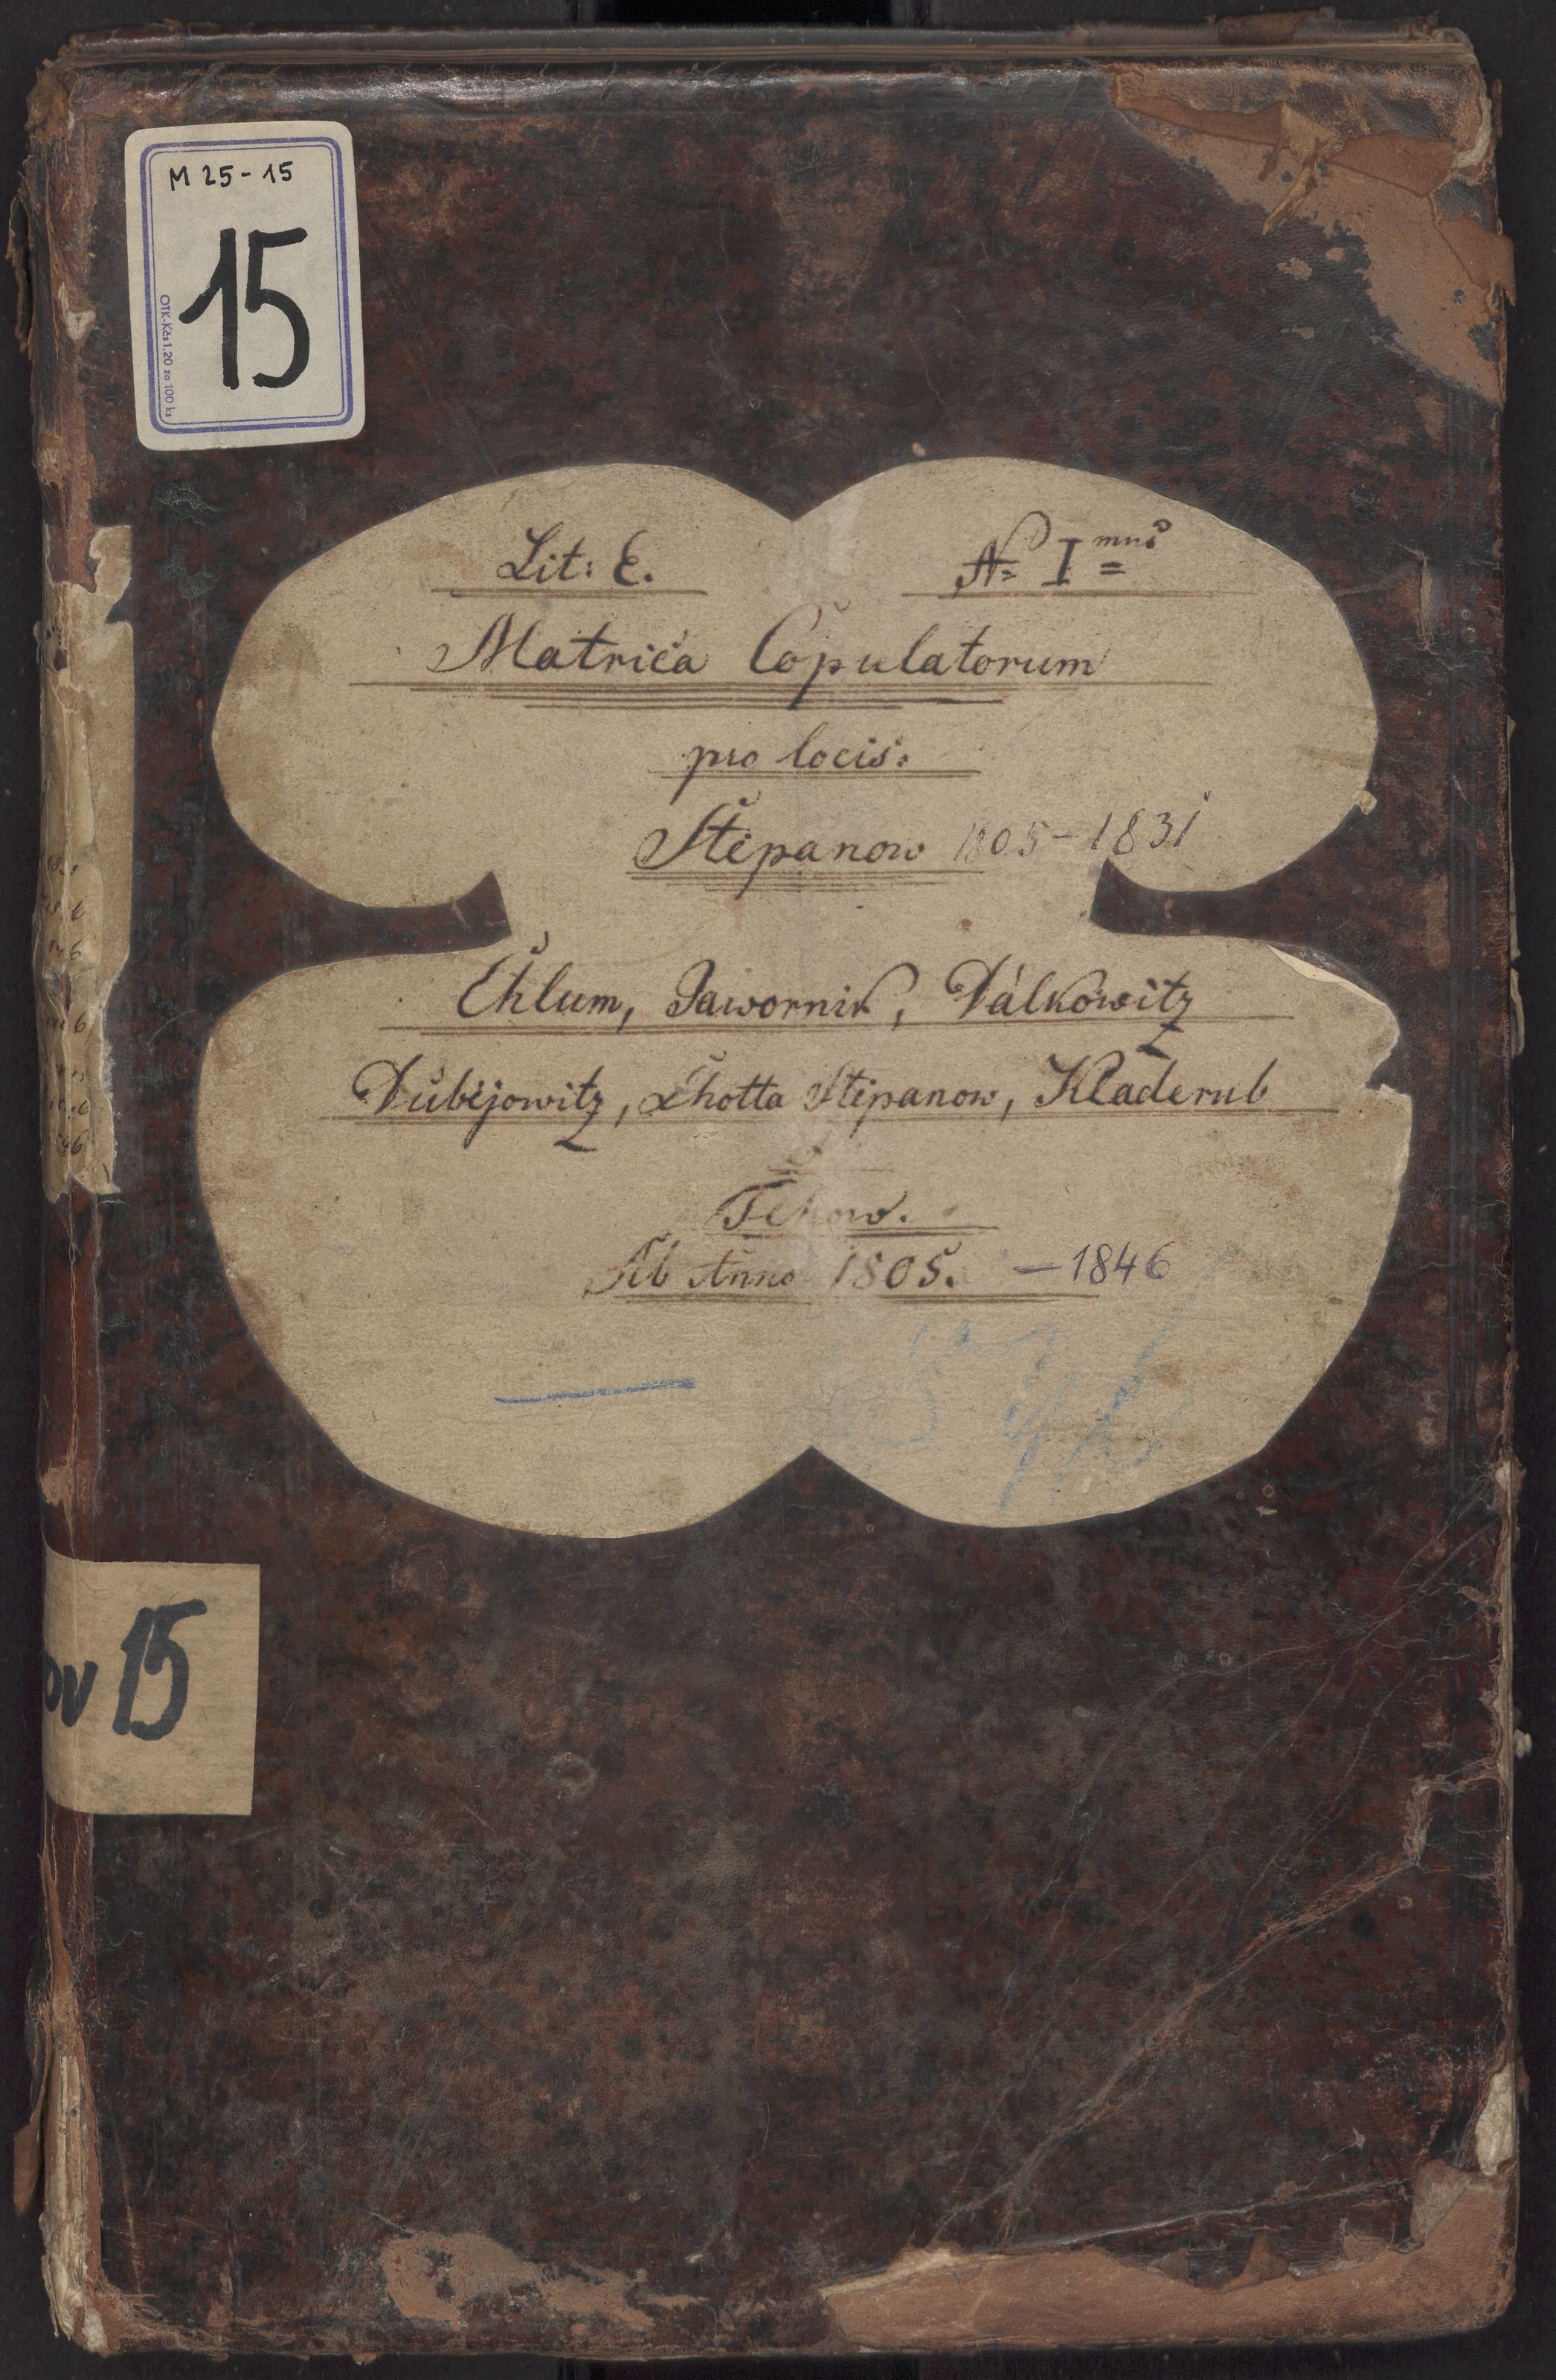 M 25-15
15
OTK-Kčs 1,20 za 100 ks
Lit: E. No I mus
Matrica Copulatorum
pro locis:
Stěpanow 1805-1831
Chlum, Jawornik, Dálkowitz
Dubějowitz, Lhotta Stěpanow, Kladerub
Ab Anno 1805. — 1846
ov 15